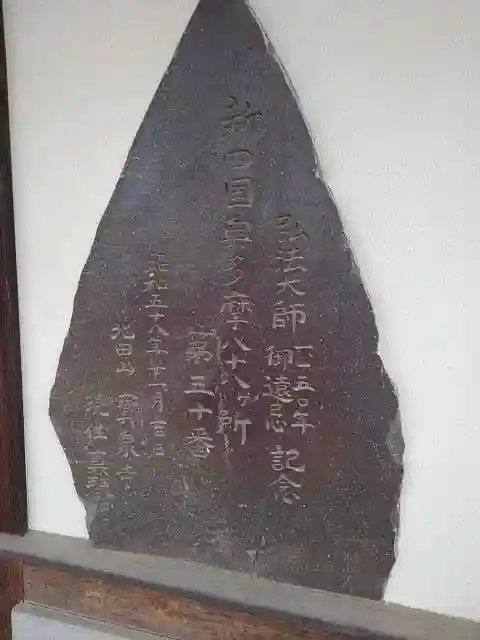 弘法大師一一五〇年御遠忌記念
新四国奥多摩八十八ヶ所
第三十番
昭和五十八年十一月三日
宝泉寺
現住